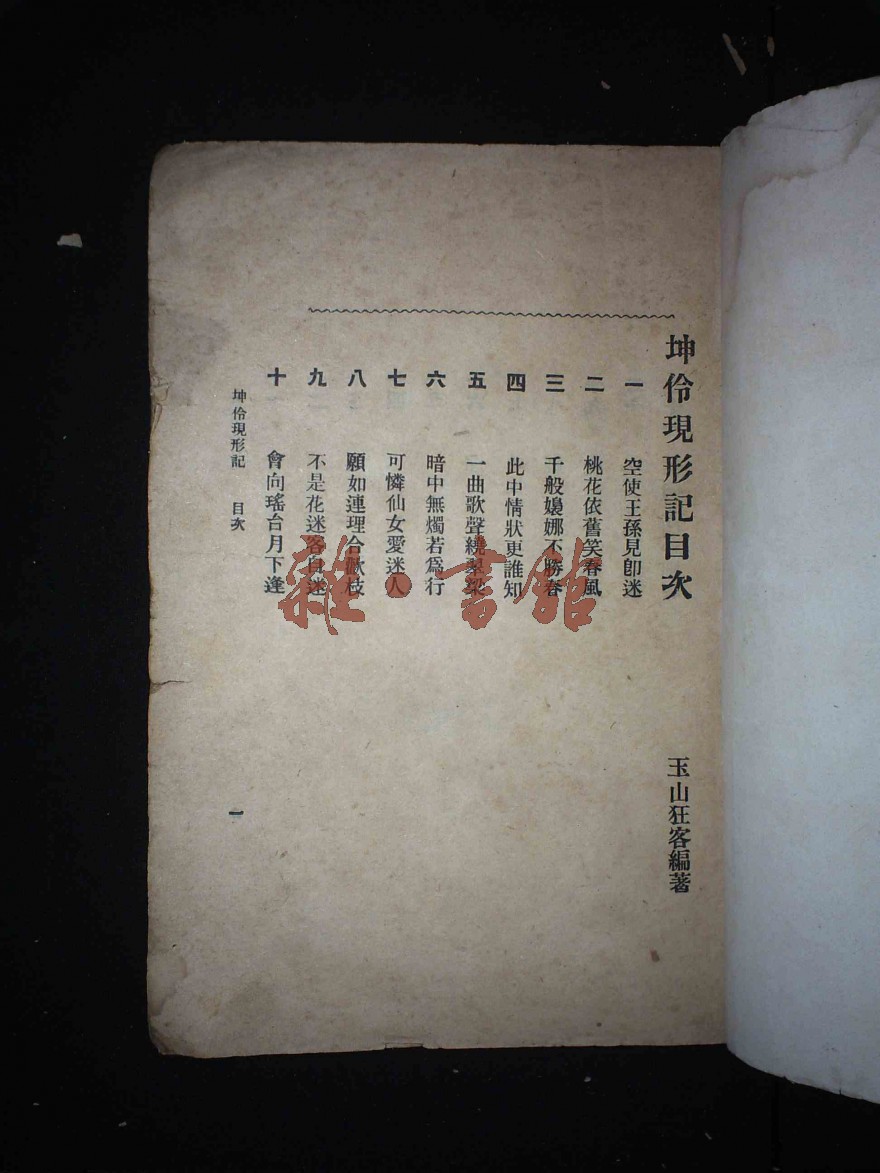 坤伶現形記目次
玉山狂客編著
一 空使王孫見卽迷
二 桃花依舊笑春風
三 千般嬝娜不勝春
四 此中情狀更誰知
五 一曲歌聲繞翠梁
六 暗中無燭若爲行
七 可憐仙女愛迷人
八 願如連理合歡枝
九 不是花迷客自迷
十 會向瑤台月下逢
坤伶現形記 目次
一
雜·書館